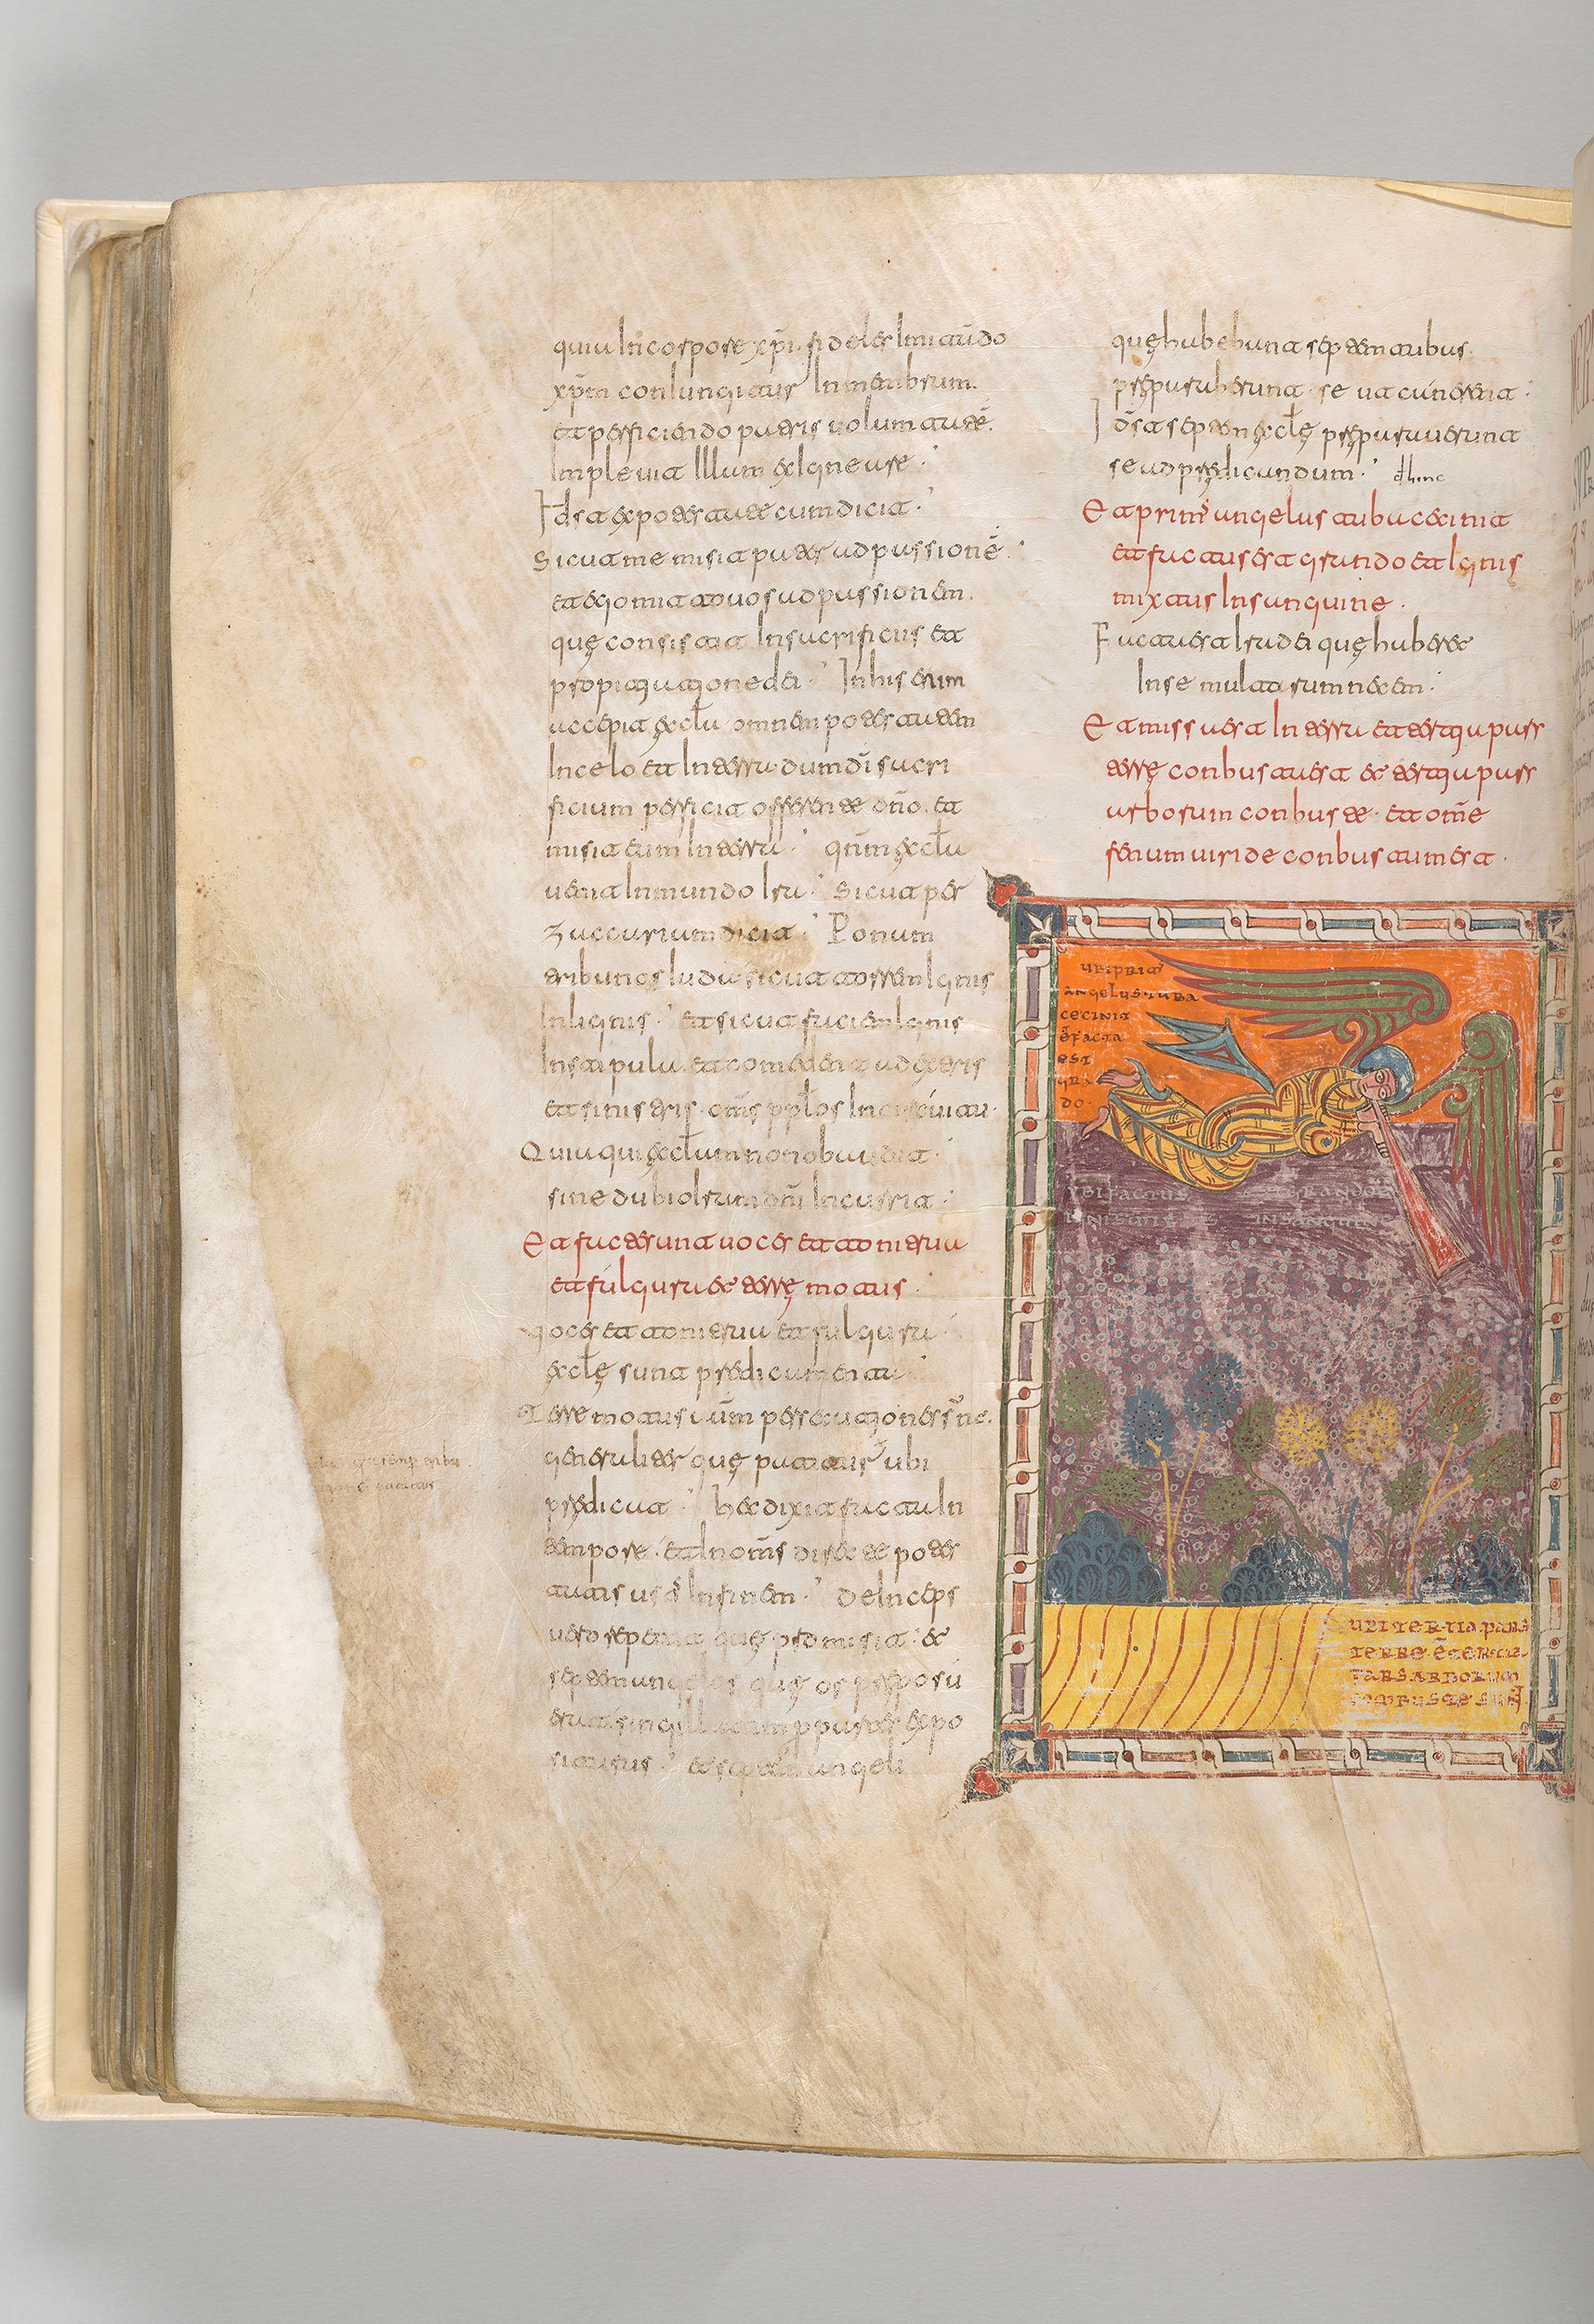 quia In corpore xp̄i. fideles Imitādo
xp̄m coniungitur In membrum.
et perficiendo patris uolumtatē.
Impleuit Illum ex Igne are .·
Id est ex potestate cum dicit .·
Sicut me misit pater ad passionē .·
et ego mitto uos ad passionem.
quę consistit In sacrificiis et
propitiatione dei .· In his enim
accepit ęccl̄a omnem potestatem
In celo et In terra. dum dī sacri
ficium perficit offerente dn̄o. et
misit eum In terra .· qn̄m ęccl̄a
uenit In mundo Ista .· Sicut per
zaccarium dicit .· Ponam
tribunos Iude sicut torrem Ignis
In lignis .· et sicut faciem Ignis
In stipula. et comedent ad dexteris
et sinistris. om̄s pp̄los In circuitu.
Quia qui ęccl̄am non obaudit .·
sine dubio Istum dn̄i Incurrit .·
Et facte sunt uoces et tonitrua
et fulgura et terrę motus .·
Voces et tonitrua et fulgura .·
ęccl̄ę sunt predicamenta .·
Terre motus persecutiones sn̄t.
generaliter quę patitur ubi
predicat .· hec dixit facta In
tempore. et In om̄s potes
tatis In finem .· deinceps
uero repetit quę promisit. et
septem angelos quos preposu
erat singillatim p partes expo
siturus .· et septem angeli
quę habebant septem tubas.
pręparaberunt se ut canerent .·
Id est septem ęccl̄ę pręparauerunt
se ad prędicandum .· dhinc
Et prims angelus tuba cecinit
et facta est grando et Ignis
mixtus In sanguine .
Facta est Ira dei quę haberet
In se multorum necem .·
Et missa est In terra et tertia pars
terrę conbusta est et tertia pars
arborum conbuste. et om̄e
fenum uiride conbustum est .
UBI PRIMS
ANGELUS TUBA
CECINIT
ET FACTA
EST
GRAN
DO.
UBI FACTUS GRANDO ET
IGNIS IN SANGUINE
UBI TERTIA PARS
TERRE ET TERTIA
PARS ARBORUM
COMBUSTE SUNT